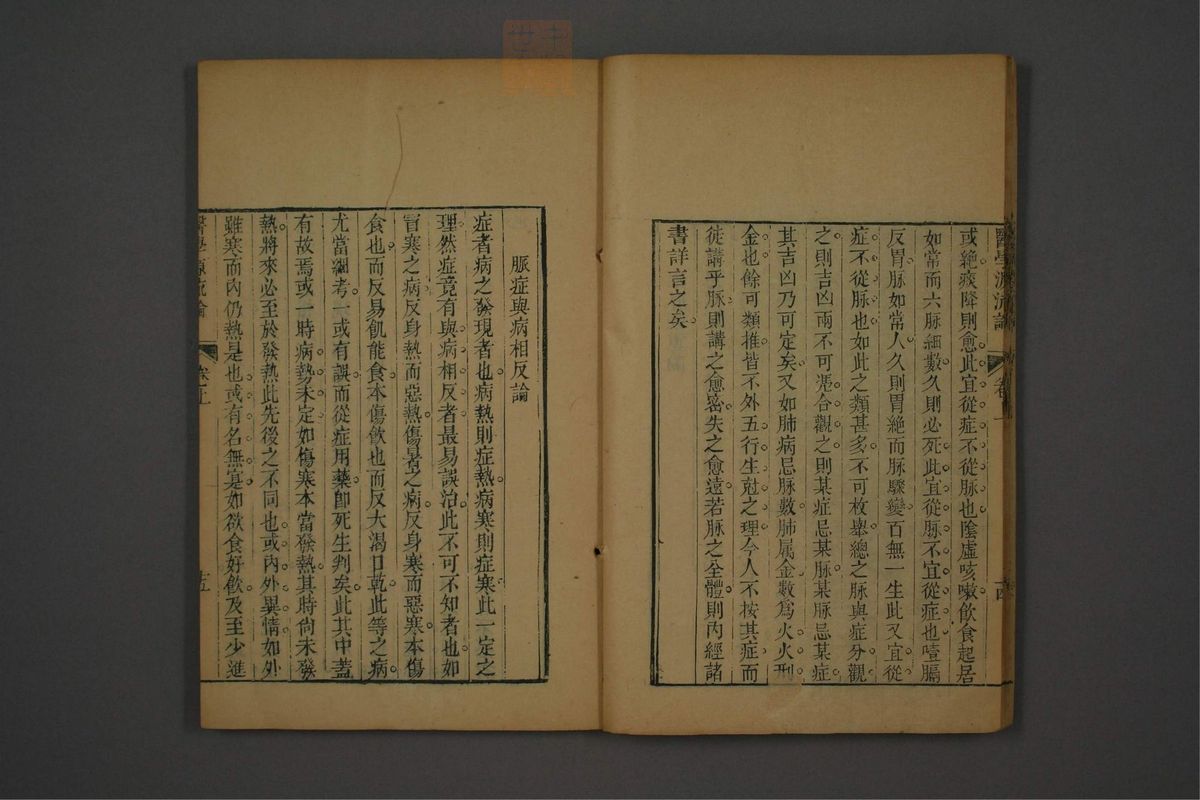 醫學源流論 卷上
或絶痰降則愈此宜從症不從脉也陰虚咳嗽飲食起居
如常而六脉細數久則必死此宜從脉不宜從症也噎膈
反胃脉如常人久則胃絶而脉驟變百無一生此又宜從
症不從脉也如此之類甚多不可枚舉總之脉與症分觀
之則吉凶兩不可凴合觀之則某症忌某脉某脉忌某症
其吉凶乃可定矣又如肺病忌脉數肺属金數爲火火刑
金也餘可類推皆不外五行生尅之理今人不按其症而
徒講乎脉則講之愈密失之愈遠若脉之全體則內經諸
書詳言之矣
脈症與病相反論
症者病之發現者也病熱則症熱病寒則症寒此一定之
理然症竟有與病相反者最易誤治此不可不知者也如
冒寒之病反身熱而惡熱傷暑之病反身寒而惡寒本傷
食也而反易飢能食本傷飲也而反大渴口乾此等之病
尤當細考一或有誤而從症用藥卽死生判矣此其中蓋
有故焉或一時病勢未定如傷寒本當發熱其時尚未發
熱將來必至於發熱此先後之不同也或內外異情如外
雖寒而內仍熱是也或有名無寔如欲食好飲及至少進
醫學源流論